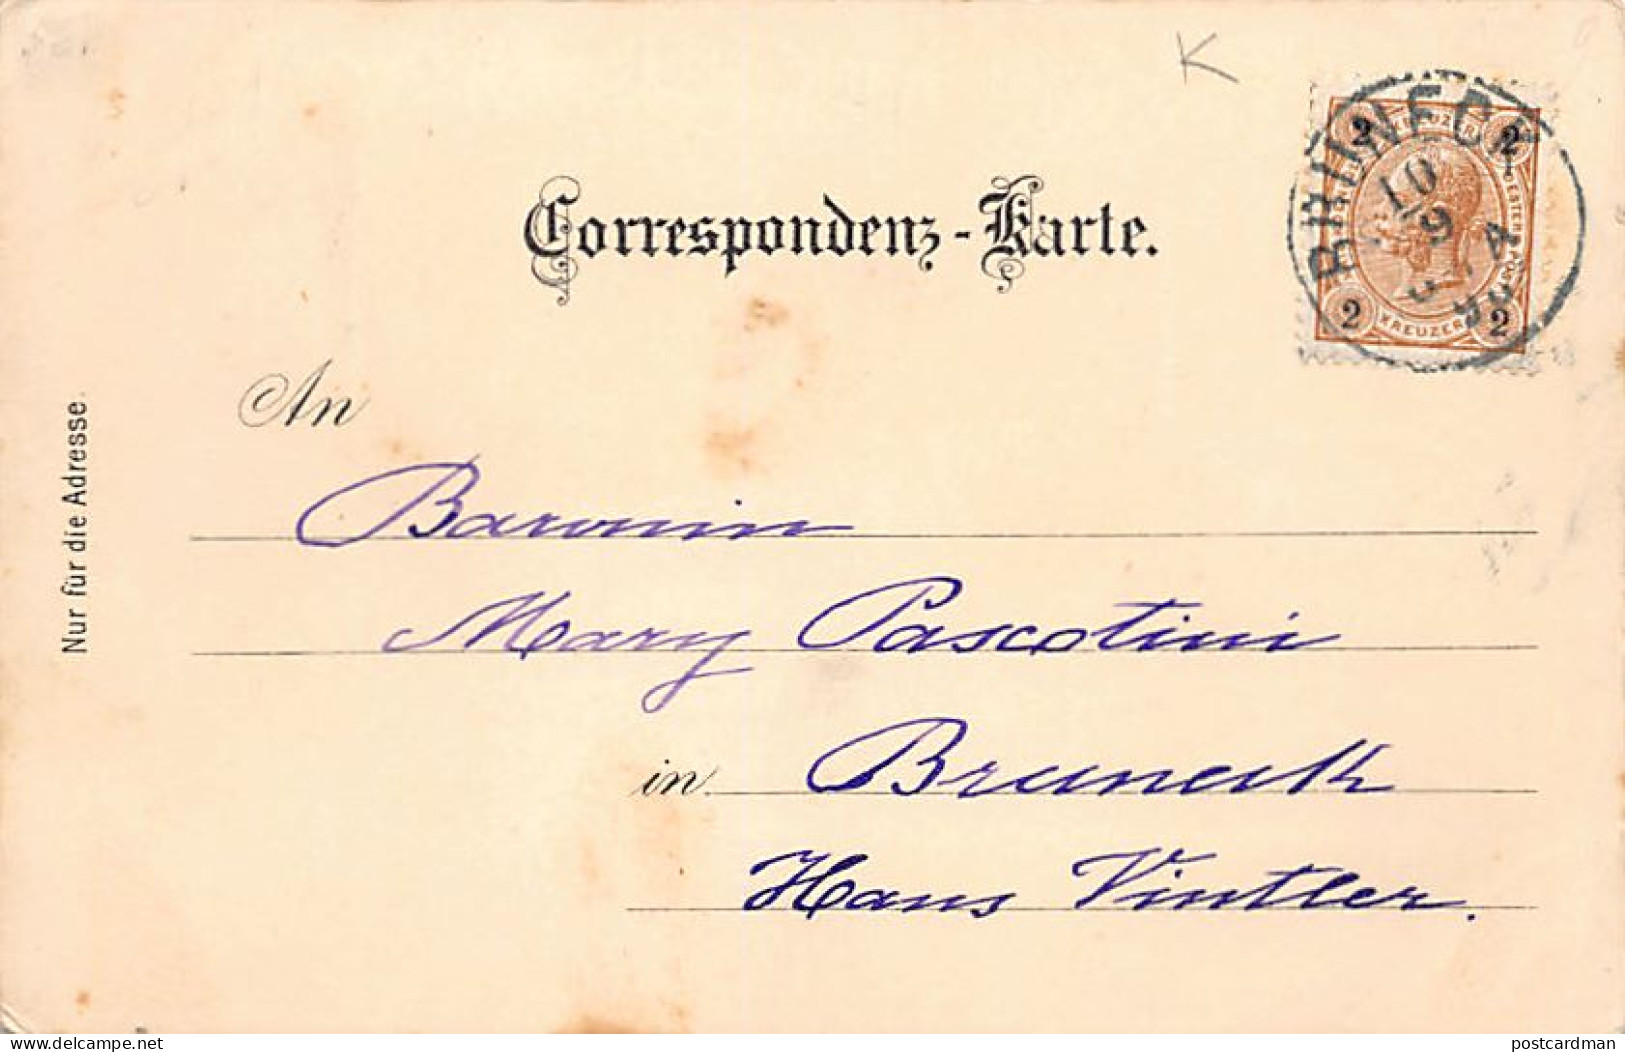 K
2 KREUZER 2
BRUNECK
10
9
OESTERR. POST
4
98
2 KREUZER 2
Correspondenz-Karte.
An
Nur für die Adresse.
Baronin
Mary Pascotini
in Bruneck
Hans Vintler.
delcampe.net
postcardman